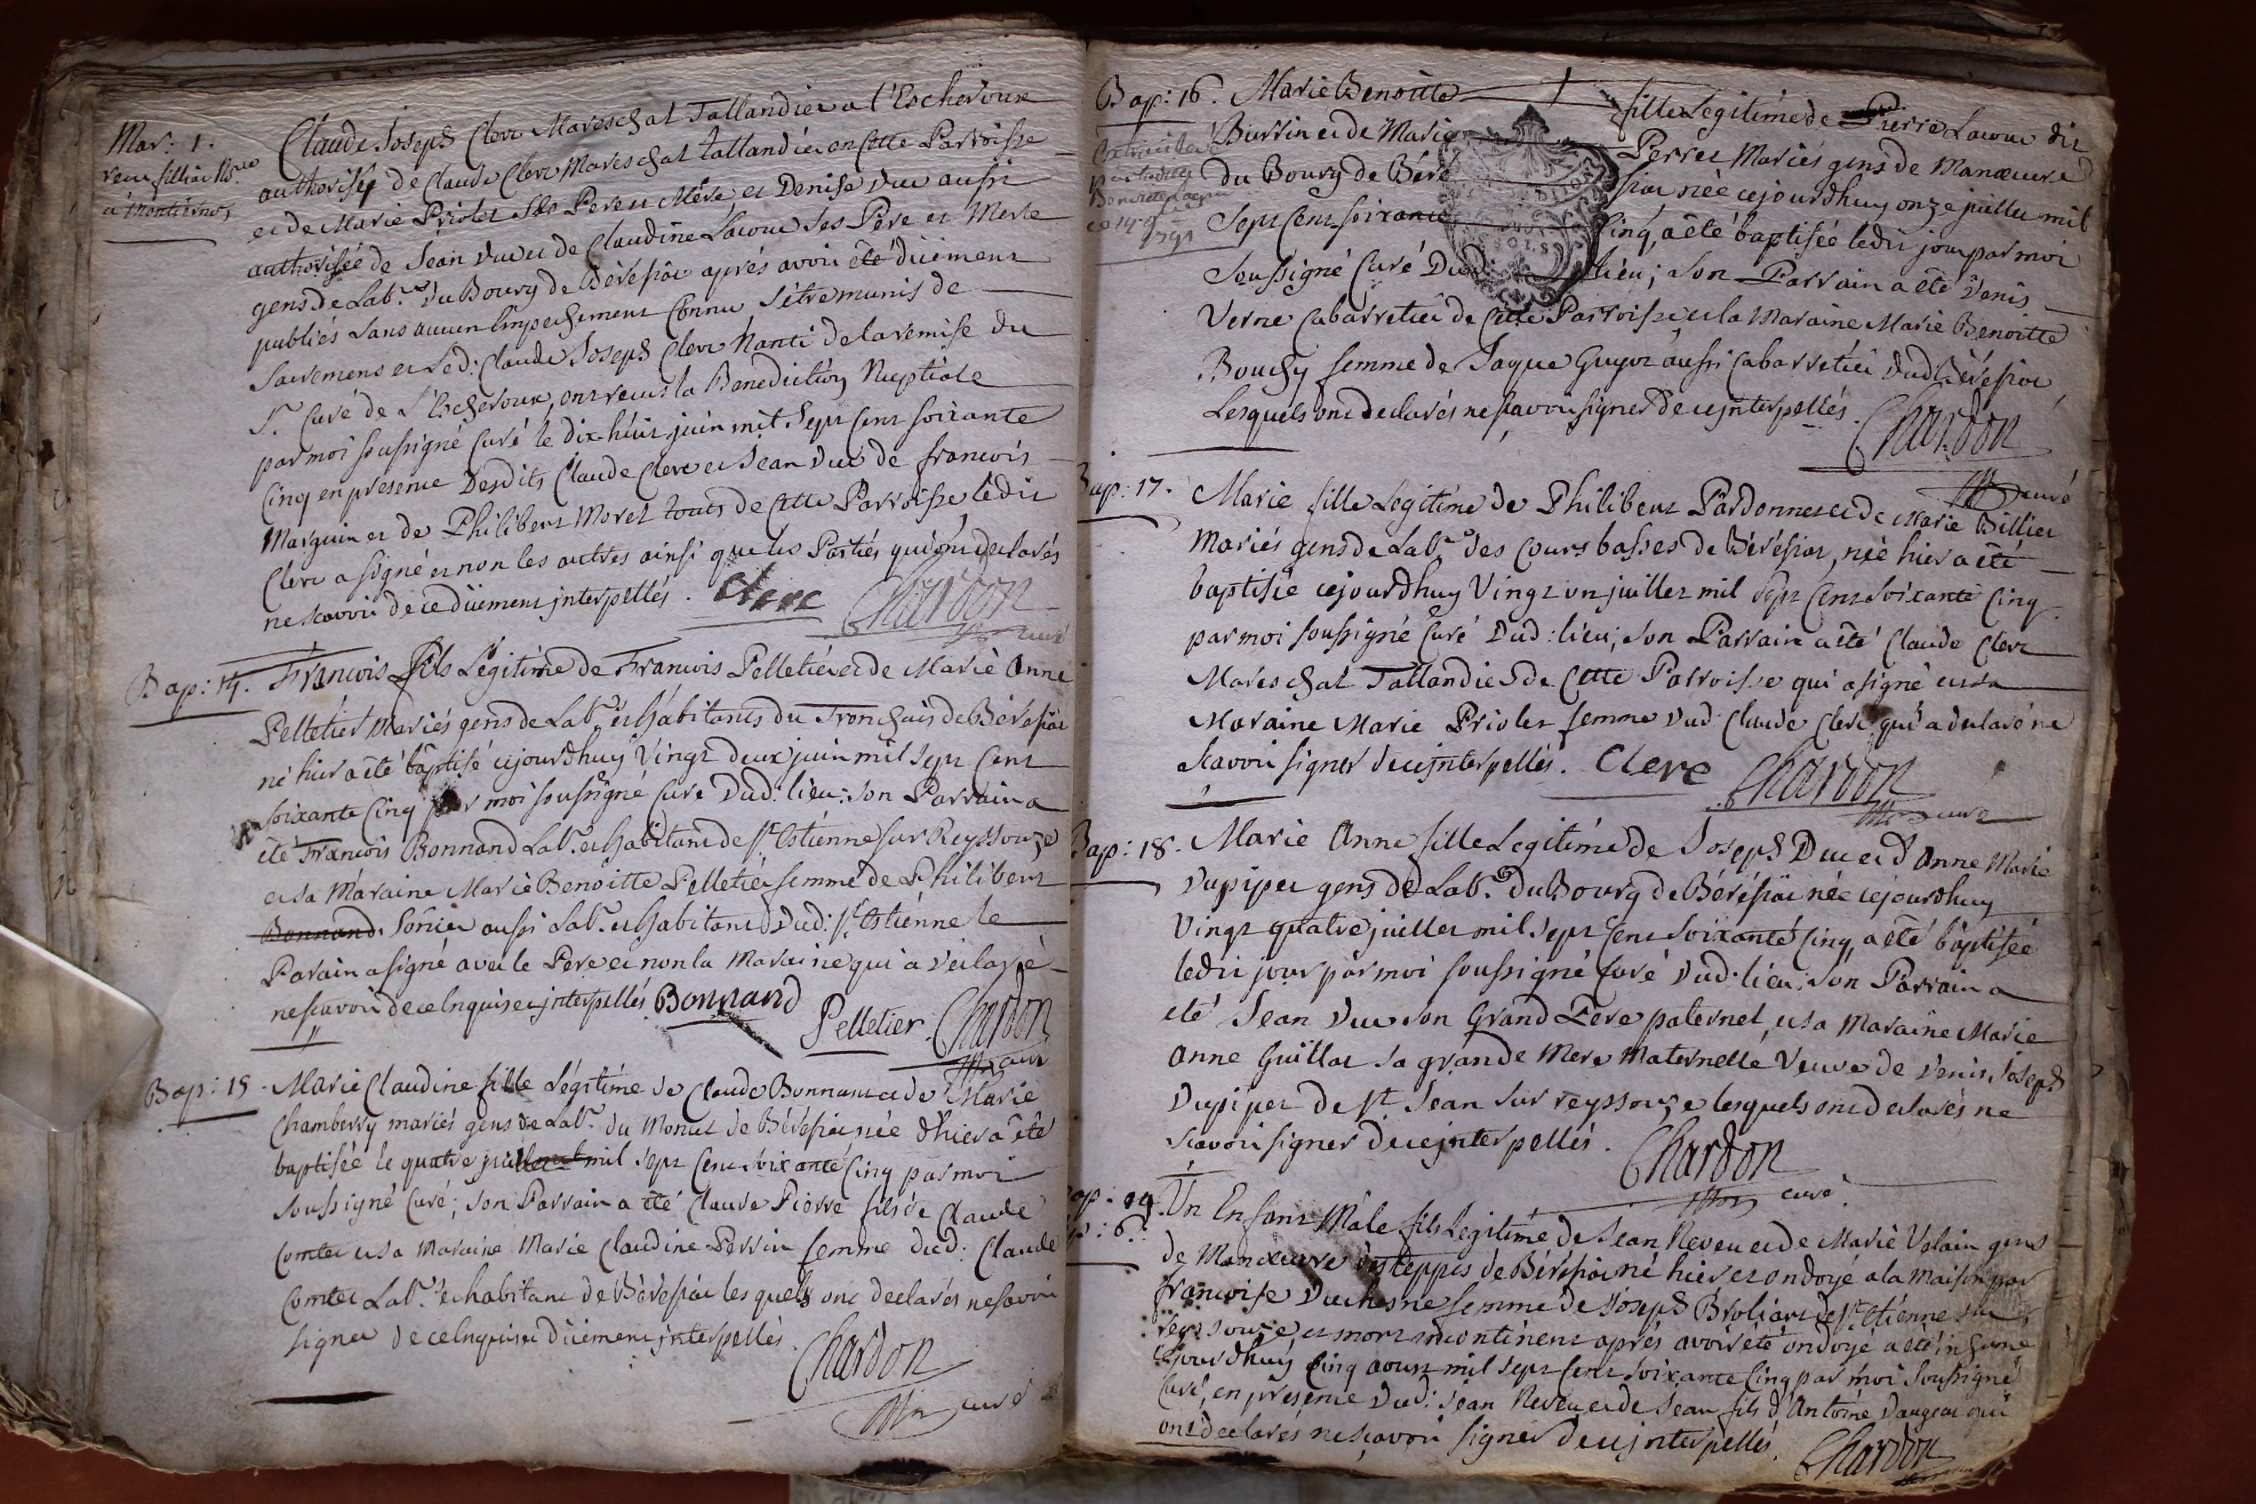 Mar: 1.
Claude Joseph Clerc Mareschal Tallandier a l'Escheroux
authorisé de Claude Clerc Mareschal tallandier en Cette Parroisse
et de Marie Priolet Ses Pere et Mere, et Denise Duc aussi
authorisée de Jean Duc et de Claudine Lacour ses Père et Merre
gens de Lab.r du Bourg de Béréfiat aprés avoir êté düement
publiés Sans aucun Empechement Connu S'étre munis de
Sacremens et Led: Claude Joseph Clerc Nanti de la remise du
S.r Curé de L'Escheroux, ont recus la Benediction Nuptiale
par moi soussigné Curé le dix-huit juin mil Sept Cent soixante
Cinq en présence Desdits Claude Clerc et Jean Duc de francois
Marguin et de Philibert Morel touts de Cette Parroisse ledit
Clerc a signé et non les autres ainsi que les Partiés qui ont declarés
ne scavoir de ce düement jnterpellés. Clerc Chardon
curé
Bap: 14. Francois fils Légitime de Francois Pelletier et de Marie Anne
Pelletier Mariés gens de Lab.r et habitants du Tronchais de Béréfiat
né hier a été baptisé cejourdhuy Vingt deux juin mil Sept Cent
soixante Cinq par moi soussigné Curé Dud: lieu: son Parrain a
été Francois Bonnand Lab.r et habitant de S.t Estienne sur Reyssouze
et sa Maraine Marie Benoitte Pelletier femme de Philibert
Bonnand. aussi Lab.r et habitant Dud: S.t Estiénne le
Parain a signé avec le Pere et non la Maraine qui a déclaré
ne scavoir de ce Enquise et jnterpellés Bonnand
Pelletier Chardon
curé
Bap: 15. Marie Claudine fille Légitime de Claude Bonnand et de Marie
Chamberry mariés gens de Lab.r du Monut de Béréfiat née d'hier a été
baptisée le quatre juillet mil Sept Cent soixante Cinq par moi
Soussigné Curé; Son Parrain a été Claude Pierre fils de Claude
Comtet et sa Maraine Marie Claudine Perrin femme dud: Claude
Comtet Lab.r et habitant de Béréfiat lesquels ont declarés ne savoir
signer de ce Enquis et düement jnterpellés.
Chardon
curé
Bap: 16. Marie Benoitte fille Légitime de Pierre Lacour dit
Burrin et de Marie Perret Mariés gens de Manœuvre
du Bourg de Béréfiat née cejourdhuy onze juillet mil
Sept Cent soixante Cinq, a été baptisée ledit jour par moi
Soussigné Curé Dud: lieu; Son Parrain a été Denis
Verne Cabarretier de Cette Parroisse et la Maraine Marie Benoitte
Bouchy femme de Jaque Guyot aussi Cabarretier Dud Béréfiat
Lesquels ont declarés ne scavoir signer de ce jnterpellés.
Chardon
curé
Bap: 17. Marie fille Legitime de Philibert Pardonnet et de Marie Billiet
Mariés gens de Lab.r des Cours basses de Béréfiat, née hier a été
baptisée cejourdhuy Vingt un juillet mil Sept Cent Soixante Cinq
par moi soussigné Curé Dud: lieu; son Parrain a été Claude Clerc
Mareschal Tallandier de Cette Parroisse qui a signé et sa
Maraine Marie Priolet femme Dud Claude Clerc qui a declaré ne
Scavoir signer de ce jnterpellés. Clerc Chardon
curé
Bap: 18. Marie Anne fille Legitime de Joseph Duc et d'Anne Marie
Dupiper gens de Lab.r du Bourg de Béréfiat née cejourdhuy
Vingt quatre juillet mil Sept Cent Soixante Cinq, a été baptisée
ledit jour par moi soussigné Curé Dud: lieu: Son Parrain a
été Jean Duc son Grand Pere paternel, et sa Maraine Marie
Anne Guillat sa grande Mere Maternelle Veuve de Denis Joseph
Dupiper de S.t Jean sur reyssouze lesquels ont declarés ne
scavoir signer de ce jnterpellés.
Chardon
curé
ap: 19. Un Enfant Mâle fils Legitime de Jean Neveu et de Marie Volain gens
p: 6. de Manœuvre des teppes de Béréfiat né hier et ondoyé a la Maison par
francoise Duchesne femme de Joseph Broliart de S.t Etiénne sur
reyssouze et mort incontinent aprés avoir été ondoyé a été inhumé
cejourdhuy Cinq aoust mil Sept Cent Soixante Cinq par moi soussigné
Curé, en presence Dud: Jean Neveu et de Jean fils d'Antoine Dangeat qui
ont declarés ne scavoir signer de ce jnterpellés.
Chardon